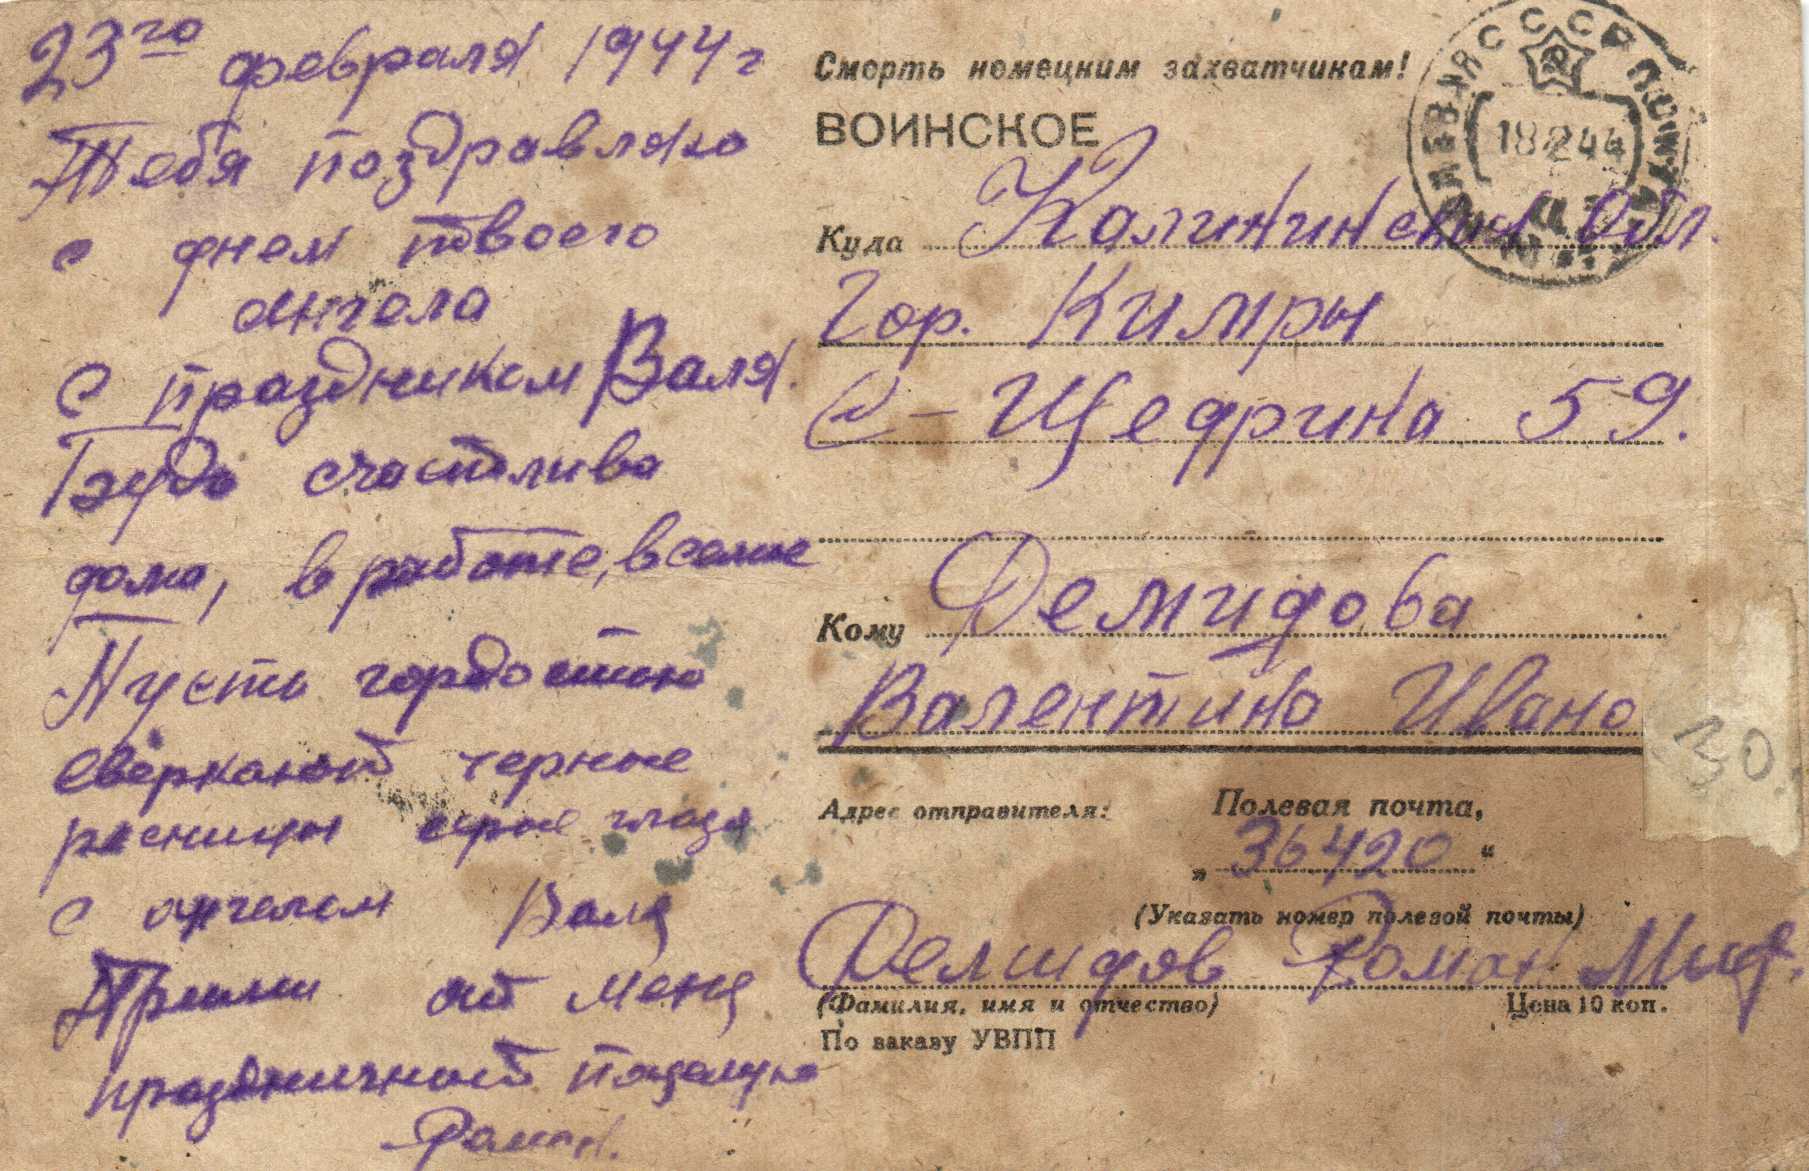 23го февраля 1944 г
Тебя поздравляю
с днем твоего
ангела
С праздником Валя.
Будь счастлива
дома, в работе, в семье
Пусть гордостью
сверкают черные
ресницы серые глаза
с ангелом Валя
Прими от меня
праздничный поцелуй
Роман.
Смерть немецким захватчикам!
ВОИНСКОЕ
СССР ПОЧТА
18 2 44
Куда Калининская Обл.
Гор. Кимры
Щедрина 59.
Кому Демидова
Валентина Ивано
30
Адрес отправителя: Полевая почта,
„ 36420 “
(Указать номер полевой почты)
Демидов Роман Миф.
(Фамилия, имя и отчество) Цена 10 коп.
По заказу УВПП